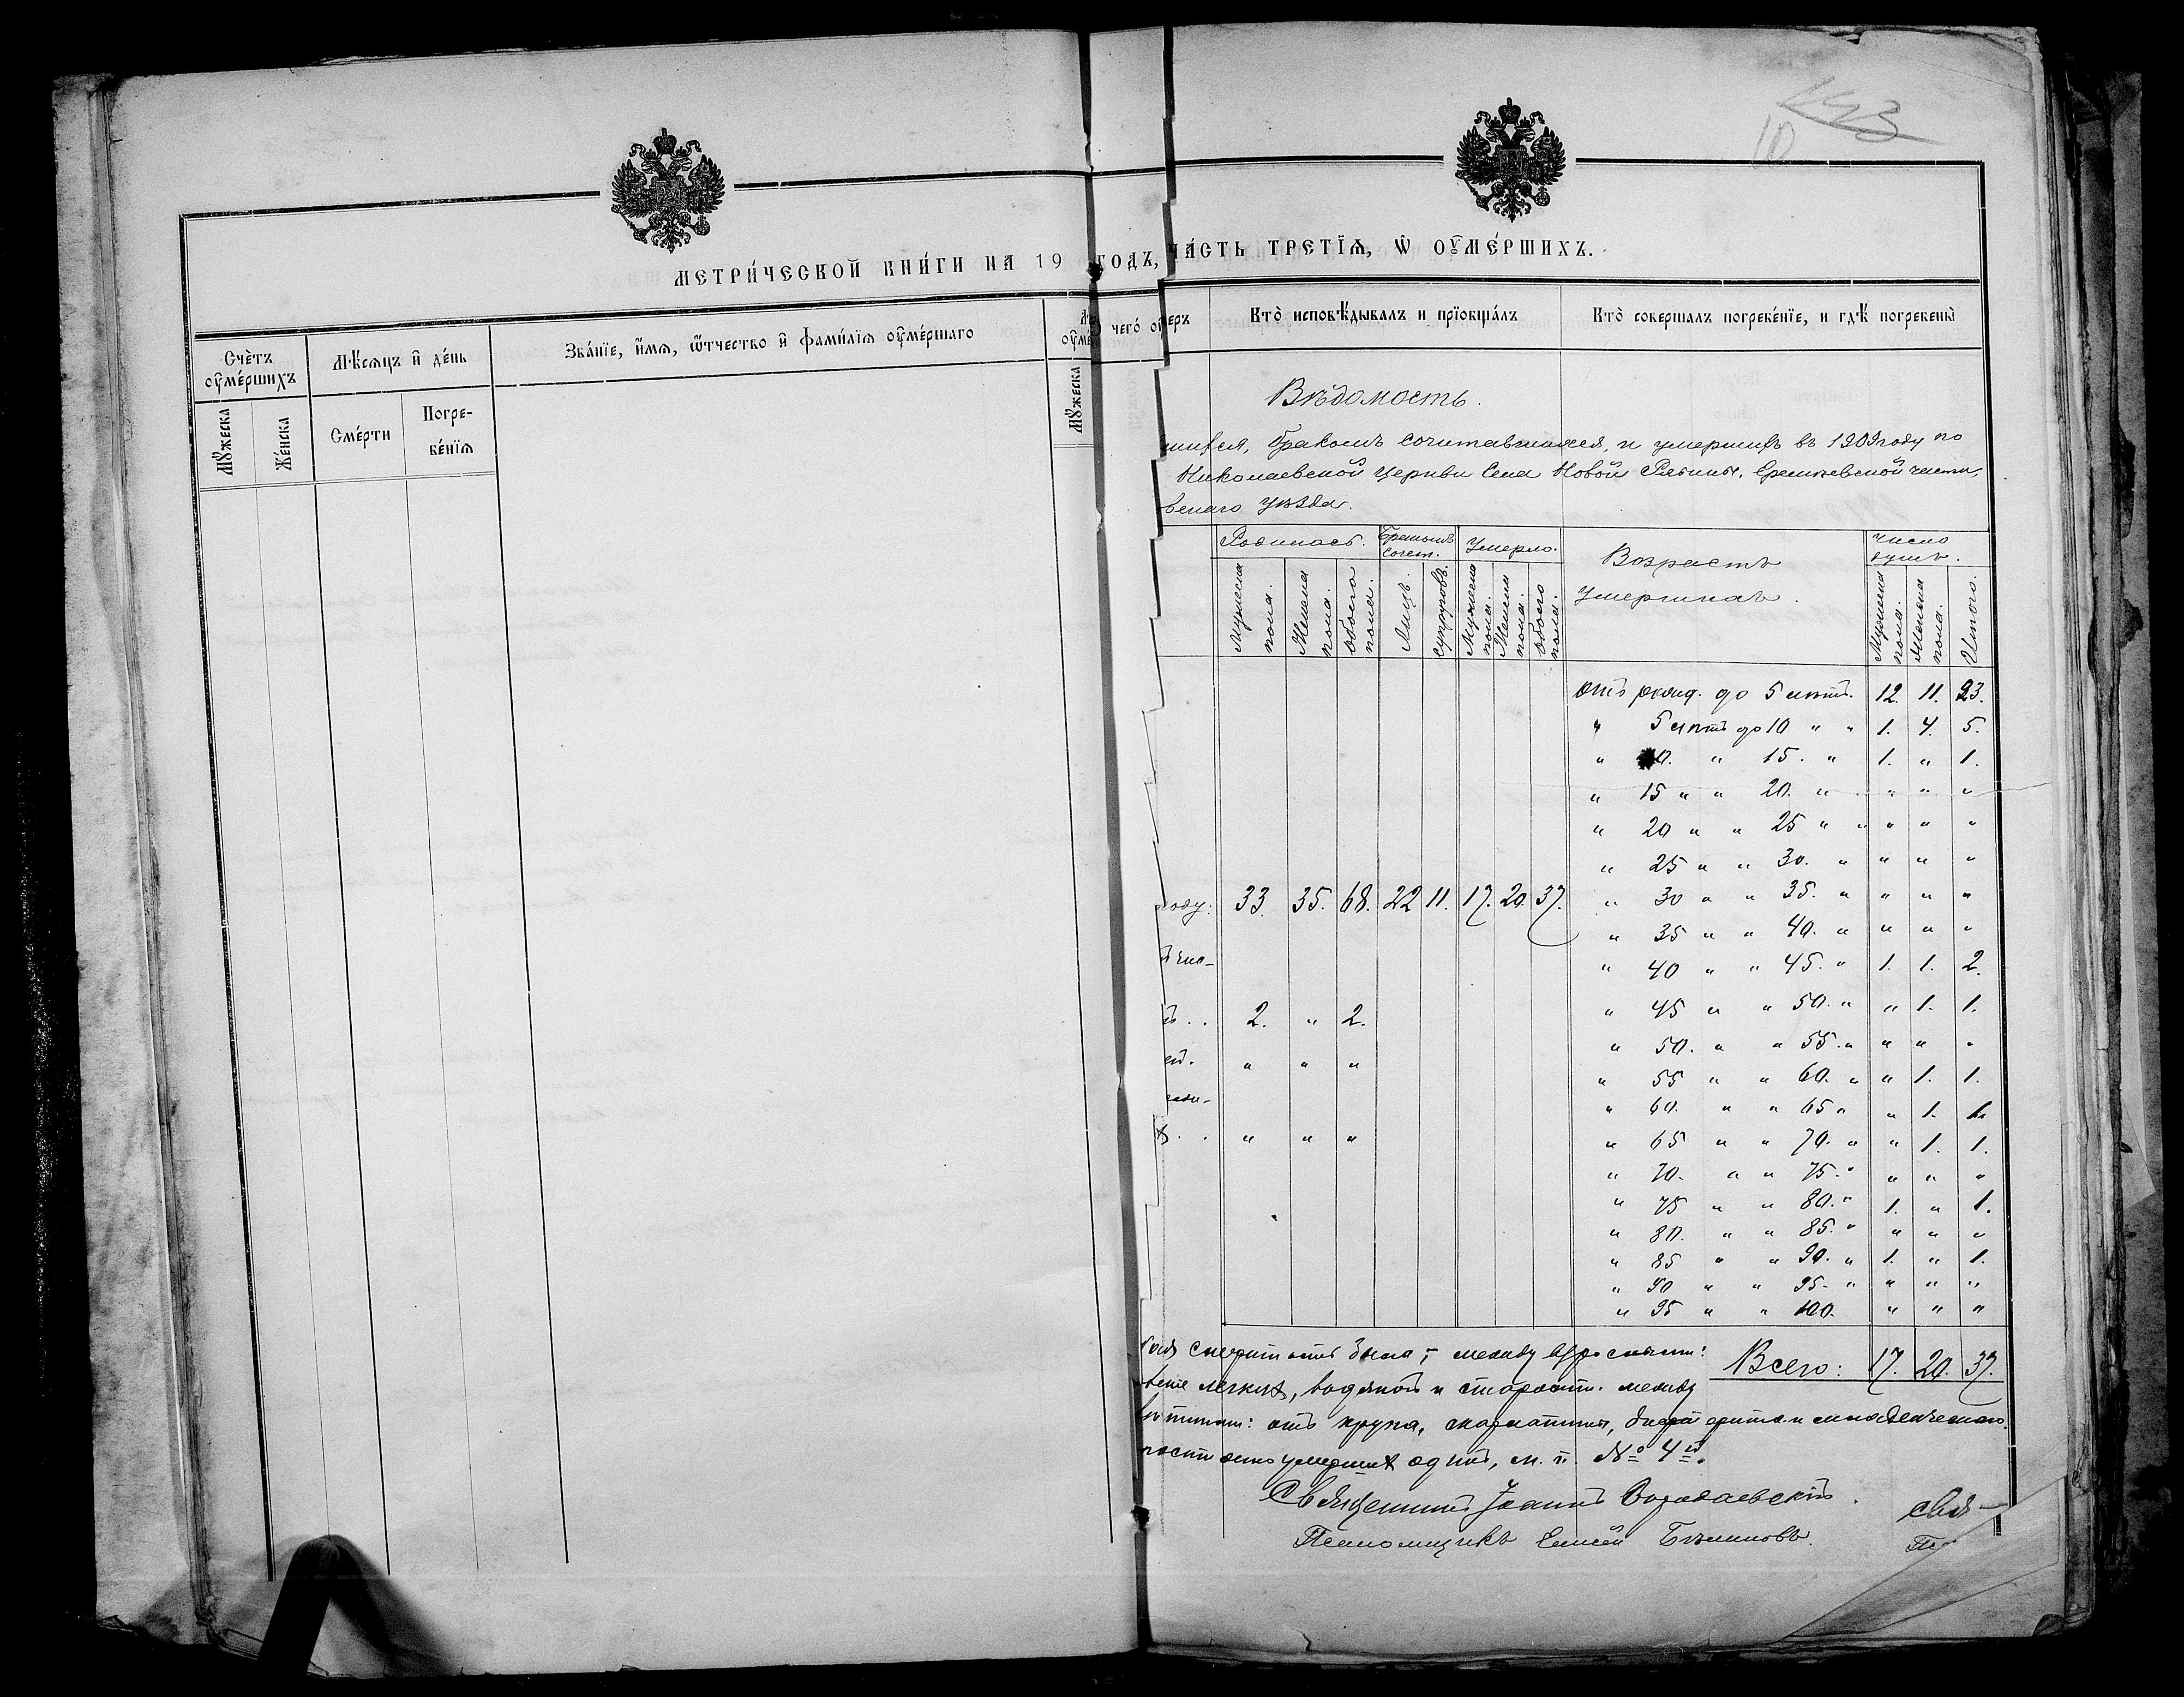 10
МЕТРИ́ЧЕСКОЙ КНИ́ГИ НА 19 ГОДЪ, ЧА́СТЬ ТРЕТІѦ, Ѿ ОУМЕ́РШИХЪ.
Сче́тъ оумéршихъ
Мѣ́сяцъ и де́нь
Зва́нїе, и́мѧ, ѿтчество и фами́лїѧ оуме́ршаго
Кто̀ исповѣ́дывалъ и прїобща́лъ
Кто̀ совершалъ погребе́нїе, и гдѣ̀ погребены̀
Мꙋ́жеска
Же́нска
Сме́рти
Погре-
бе́нїѧ
Мꙋ́жеска
чего́
Вѣдомость.
бракомъ сочитавшихся, и умершихъ въ 1909 году по
Николаевской Церкви Села Новой Рябины,
уѣзда.
Родилось.
Бракомъ сочет.
Умерло.
Возрастъ
Умершихъ.
Число душъ.
Мужеска пола.
Женска пола.
Обоего пола.
Лицъ.
супруговъ.
Мужеска пола.
Женска пола.
Обоего пола.
Мужеска пола.
Женска пола.
Итого.
отъ рожд. до 5 лѣтъ. 12. 11. 23.
" 5 лѣтъ до 10 " " 1. 4. 5.
" 10. " 15. " 1. " 1.
" 15 " " 20. " " " "
" 20 " " 25 " " " " "
" 25 " " 30. " " " "
году: 33. 35. 68. 22 11. 17. 20. 37.
" 30 " " 35. " " " "
" 35 " " 40. " " " "
" 40 " " 45. " 1. 1. 2.
" 45 " " 50. " " 1. 1.
2. " 2.
" 50. " " 55. " " " "
" " "
" 55 " " 60. " " 1. 1.
" 60. " " 65 " " 1. 1.
" " "
" 65 " " 70. " " 1. 1.
" 70. " " 75. " " " "
" 75 " " 80. " 1. " 1.
" 80. " " 85. " " " "
" 85 " " 90. " 1. " 1.
" 90 " " 95. " " " "
" 95 " " 100. " " "
смертность была, между взрослыми:
Всего: 17. 20. 37.
легкихъ, водянки и старости. между
отъ крупа, скарлатины, дифтерита и младенческаго
умершихъ одинъ, м. п. № 4й.
Священникъ Іоаннъ
Псаломщикъ Елисей
Свя-